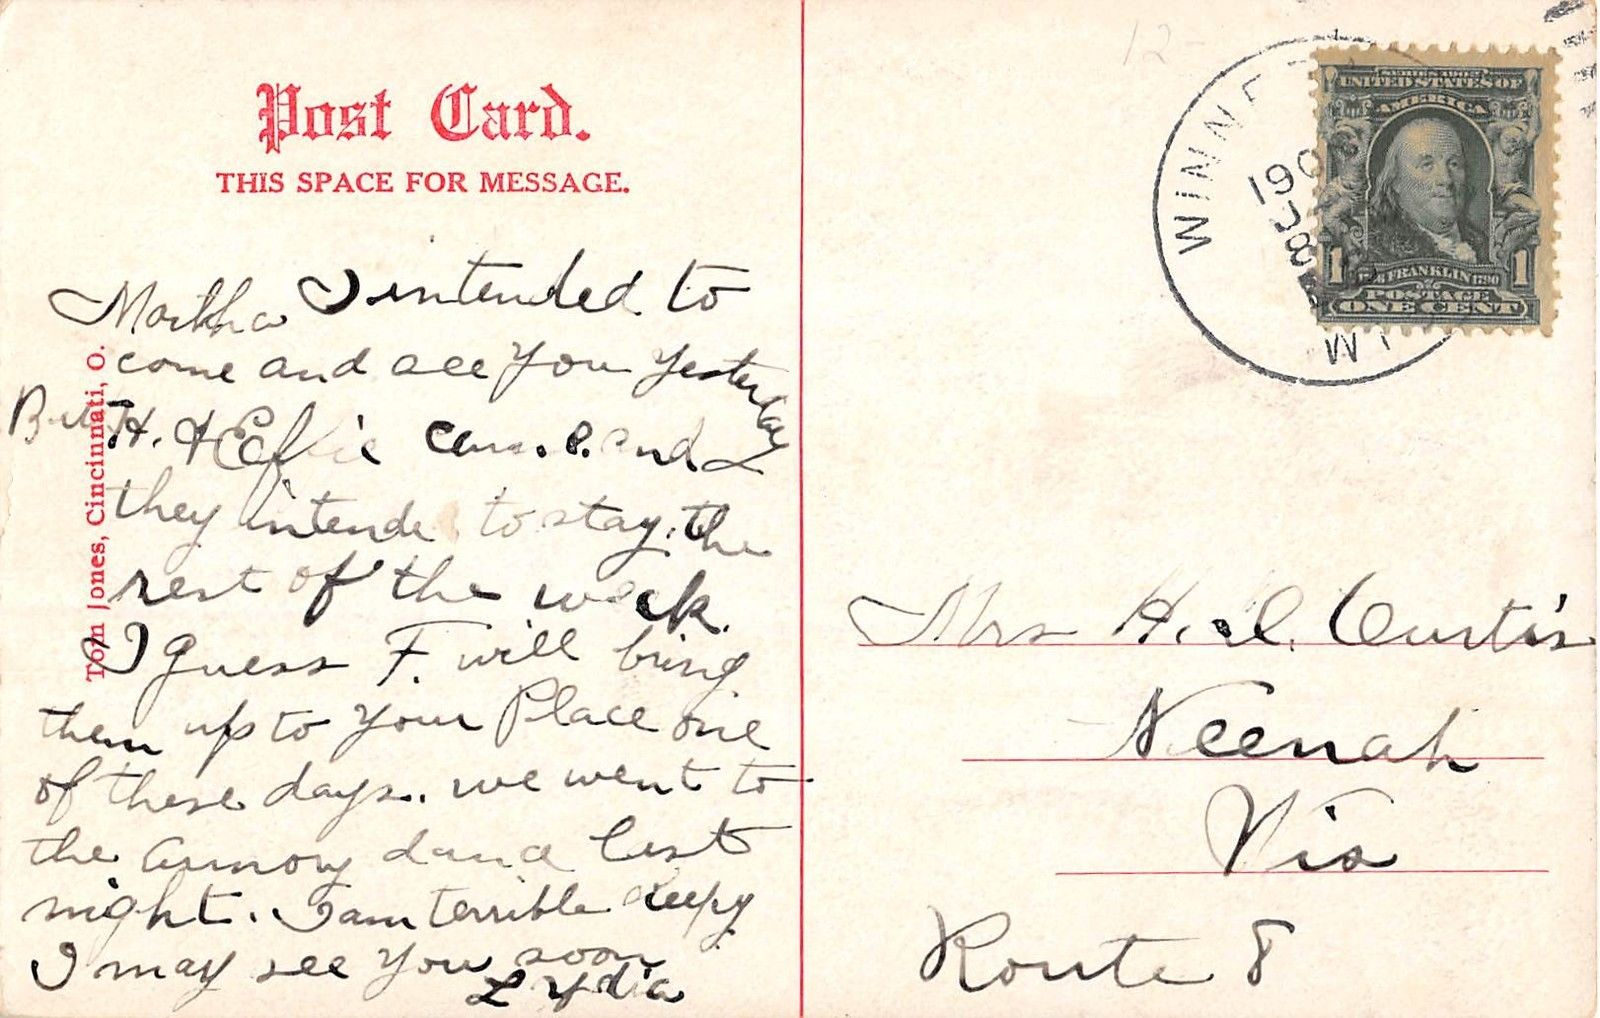 Post Card.
THIS SPACE FOR MESSAGE.
Martha I intended to
come and see you yesterday
But H. & Effie came. and
they intende to stay the
rest of the week.
I guess F. will bring
them up to your Place one
of these days. we went to
the armory dance last
night. I am terrible sleepy
I may see you soon
Lydia
Tom Jones, Cincinnati, O.
12-
WINNE
190
8
UNITED STATES OF
AMERICA
1 FRANKLIN 1
POSTAGE
ONE CENT
Mrs H. I. Curtis
Neenah
Wis
Route 8